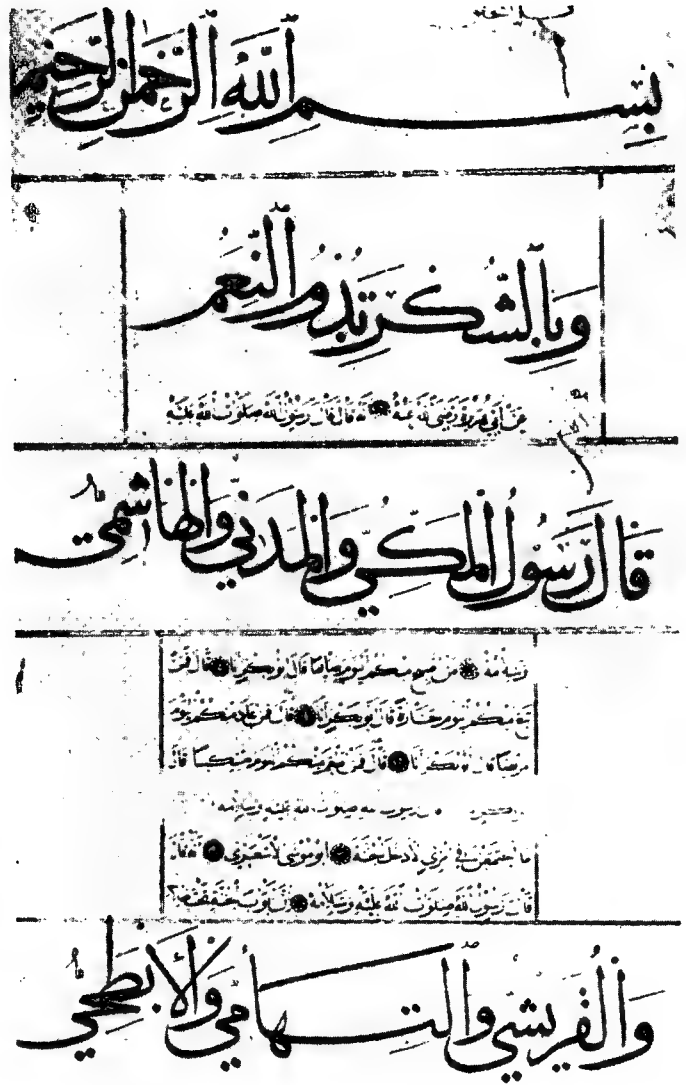 بسم الله الرحمن الرحيم
وبالشكر تدوم النعم
عن أبي هريرة رضي الله عنه قال قال رسول الله صلوات الله عليه
قال رسول المكي والمدني والهاشمي
وسلامه من أصبح منكم اليوم صائما قال أبو بكر أنا قال فمن
تبع منكم اليوم جنازة قال أبو بكر أنا قال فمن عاد منكم اليوم
مريضا قال أبو بكر أنا قال فمن أطعم منكم اليوم مسكينا قال
رسول الله صلوات الله عليه وسلامه
ما اجتمعن في امرئ إلا دخل الجنة أبو موسى الأشعري قال
قال رسول الله صلوات الله عليه وسلامه إن أبواب الجنة تحت
والقريشي والتهامي والأبطحي